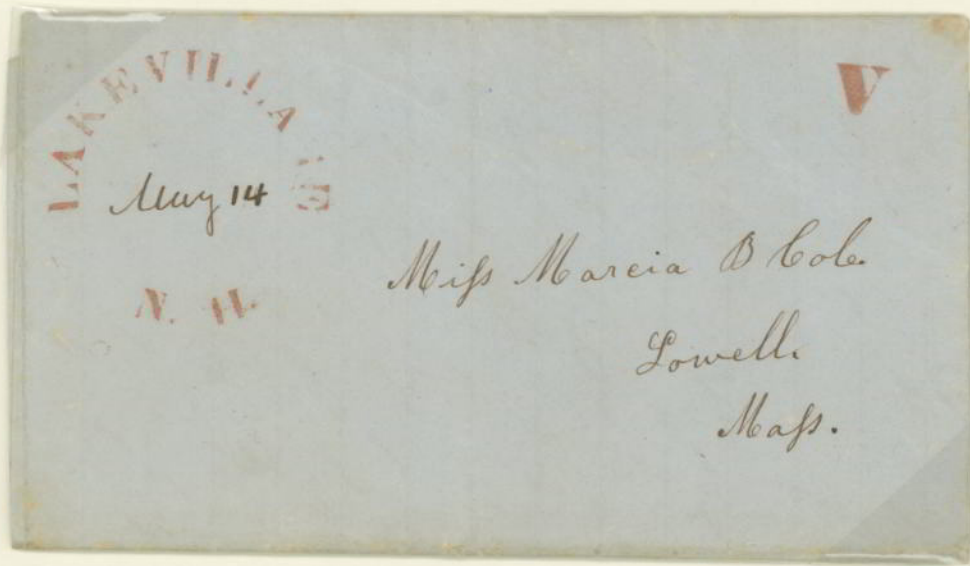 LAKE VILLAGE
V
May 14
Miſs Marcia B Cole.
N. H.
Lowell.
Maſs.